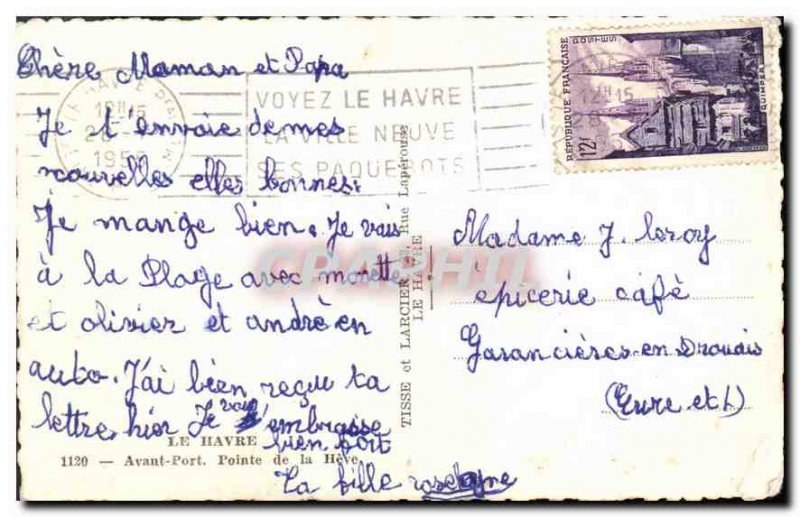 Chère Maman et Papa
Je t'envoie de mes
nouvelles elles bonnes.
Je mange bien. Je vais
à la Plage avec
et olivier et andrè en
auto. J'ai bien reçu ta
lettre hier Je vais t'embrasse
bien fort
Ta fille
LE HAVRE
1120 — Avant-Port. Pointe de la Hève
TISSE et LARCIER, Rue Lapérouse
LE HAVRE
LE HAVRE
18H15
VOYEZ LE HAVRE
LA VILLE NEUVE
SES PAQUEBOTS
RÉPUBLIQUE FRANÇAISE
POSTES
QUIMPER
12F
Madame J. leroy
épicerie café
Garancières-en Drouais
(Eure et L)
CPAPHIL